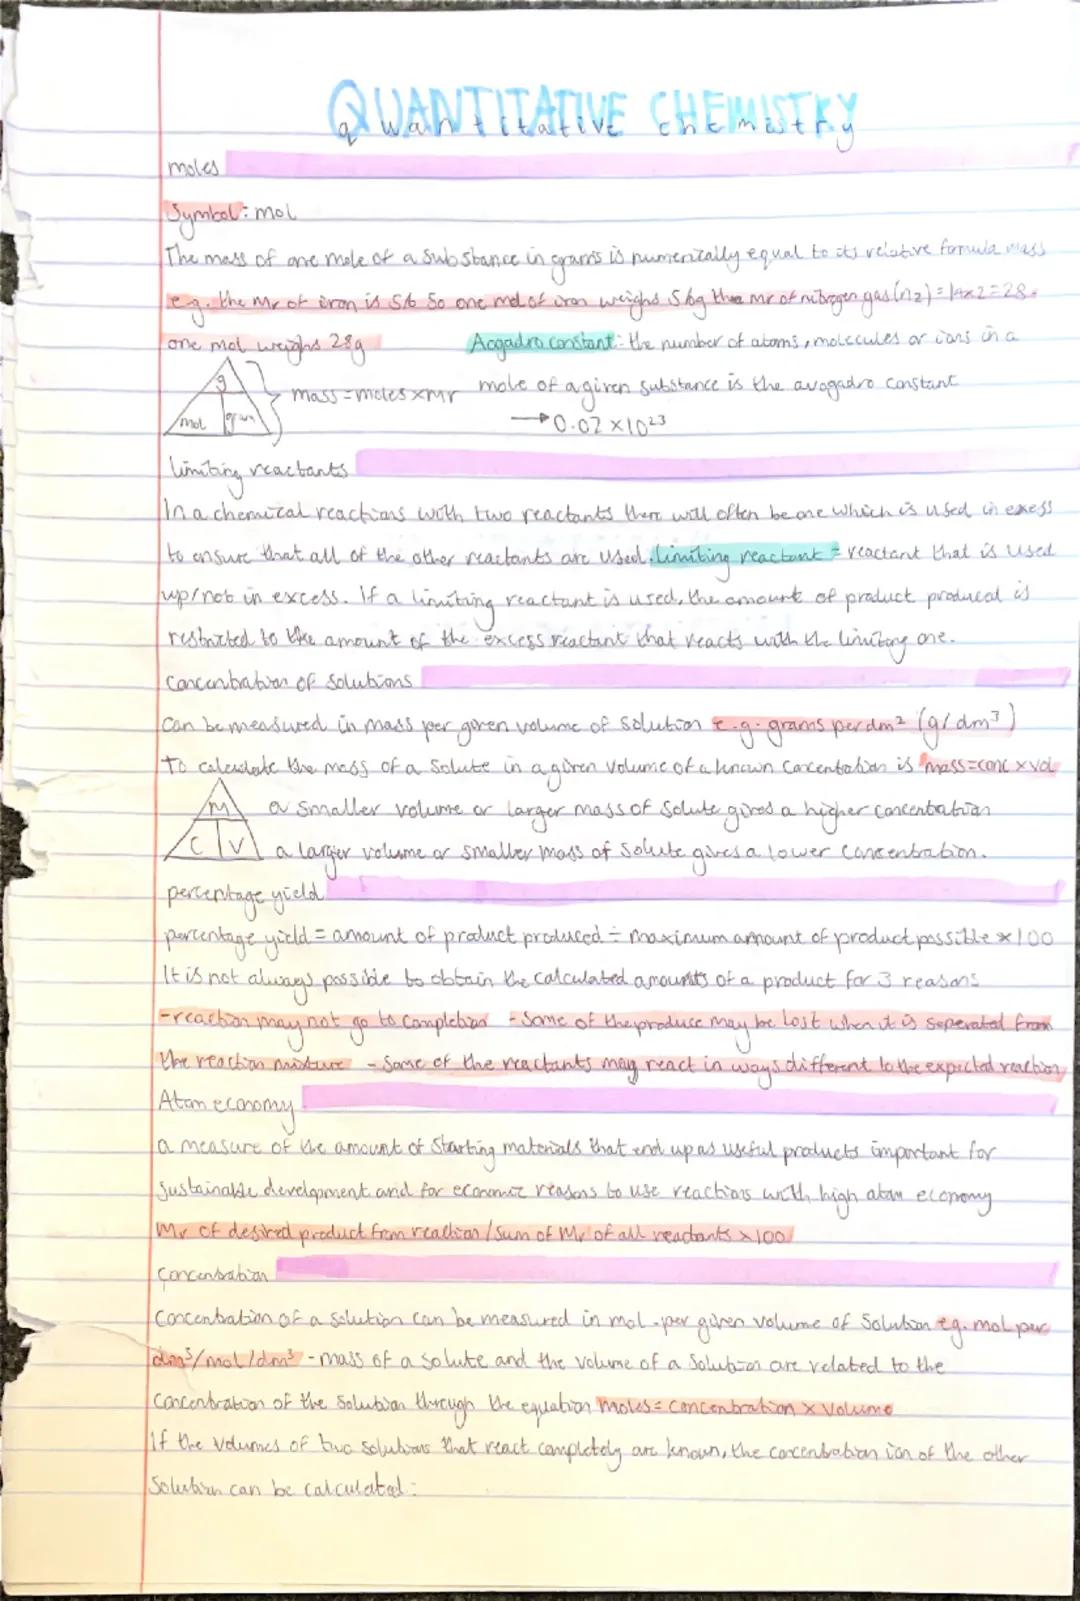 QUANTITATIVE CHEMISTRY
quantitative chemistry
moles
Symbol: mol
The mass of one mole of a substance in grams is numerically equal to its relative formula mass
e.g. the Mr of iron is 56 So one mol of iron weighs 56g the mr of nitrogen gas (n2) = 14x2=28.
one mol weighs 28g
Aogadro constant: the number of atoms, molecules or ions in a
g
mol gram
mass = moles x mr
mole of a given substance is the avogadro constant
→ 0.02 x 10²³
limiting reactants
In a chemical reactions with two reactants there will often be one which is used in excess
to ensure that all of the other reactants are used. limiting reactant = reactant that is used
up/not in excess. If a limiting reactant is used, the amount of product produced is
restricted to the amount of the excess reactant that reacts with the limiting one.
Concentration of Solutions
Can be measured in mass per given volume of solution e.g. grams per dm² (g/dm³)
To calculate the mass of a solute in a given volume of a known concentration is mass=conc x vol
M
C V
a smaller volume or larger mass of solute gives a higher concentration
a larger volume or smaller mass of solute gives a lower concentration.
percentage yield
percentage yield = amount of product produced ÷ maximum amount of product possible x 100
It is not always possible to obtain the calculated amounts of a product for 3 reasons
-reaction may not go to completion - Some of the produce may be lost when it is seperated from
the reaction mixture - Some of the reactants may react in ways different to the expected reaction
Atom economy
a measure of the amount of starting materials that end up as useful products important for
Sustainable development and for economic reasons to use reactions with high atom economy
Mr of desired product from reaction / Sum of Mr of all reactants x 100
Concentration
Concentration of a solution can be measured in mol per given volume of solution eg. mol per
dm³/mol/dm³ - mass of a solute and the volume of a solution are related to the
Concentration of the solution through the equation moles = concentration x volume
If the volumes of two solutions that react completely are known, the concentration ion of the other
Solution can be calculated: